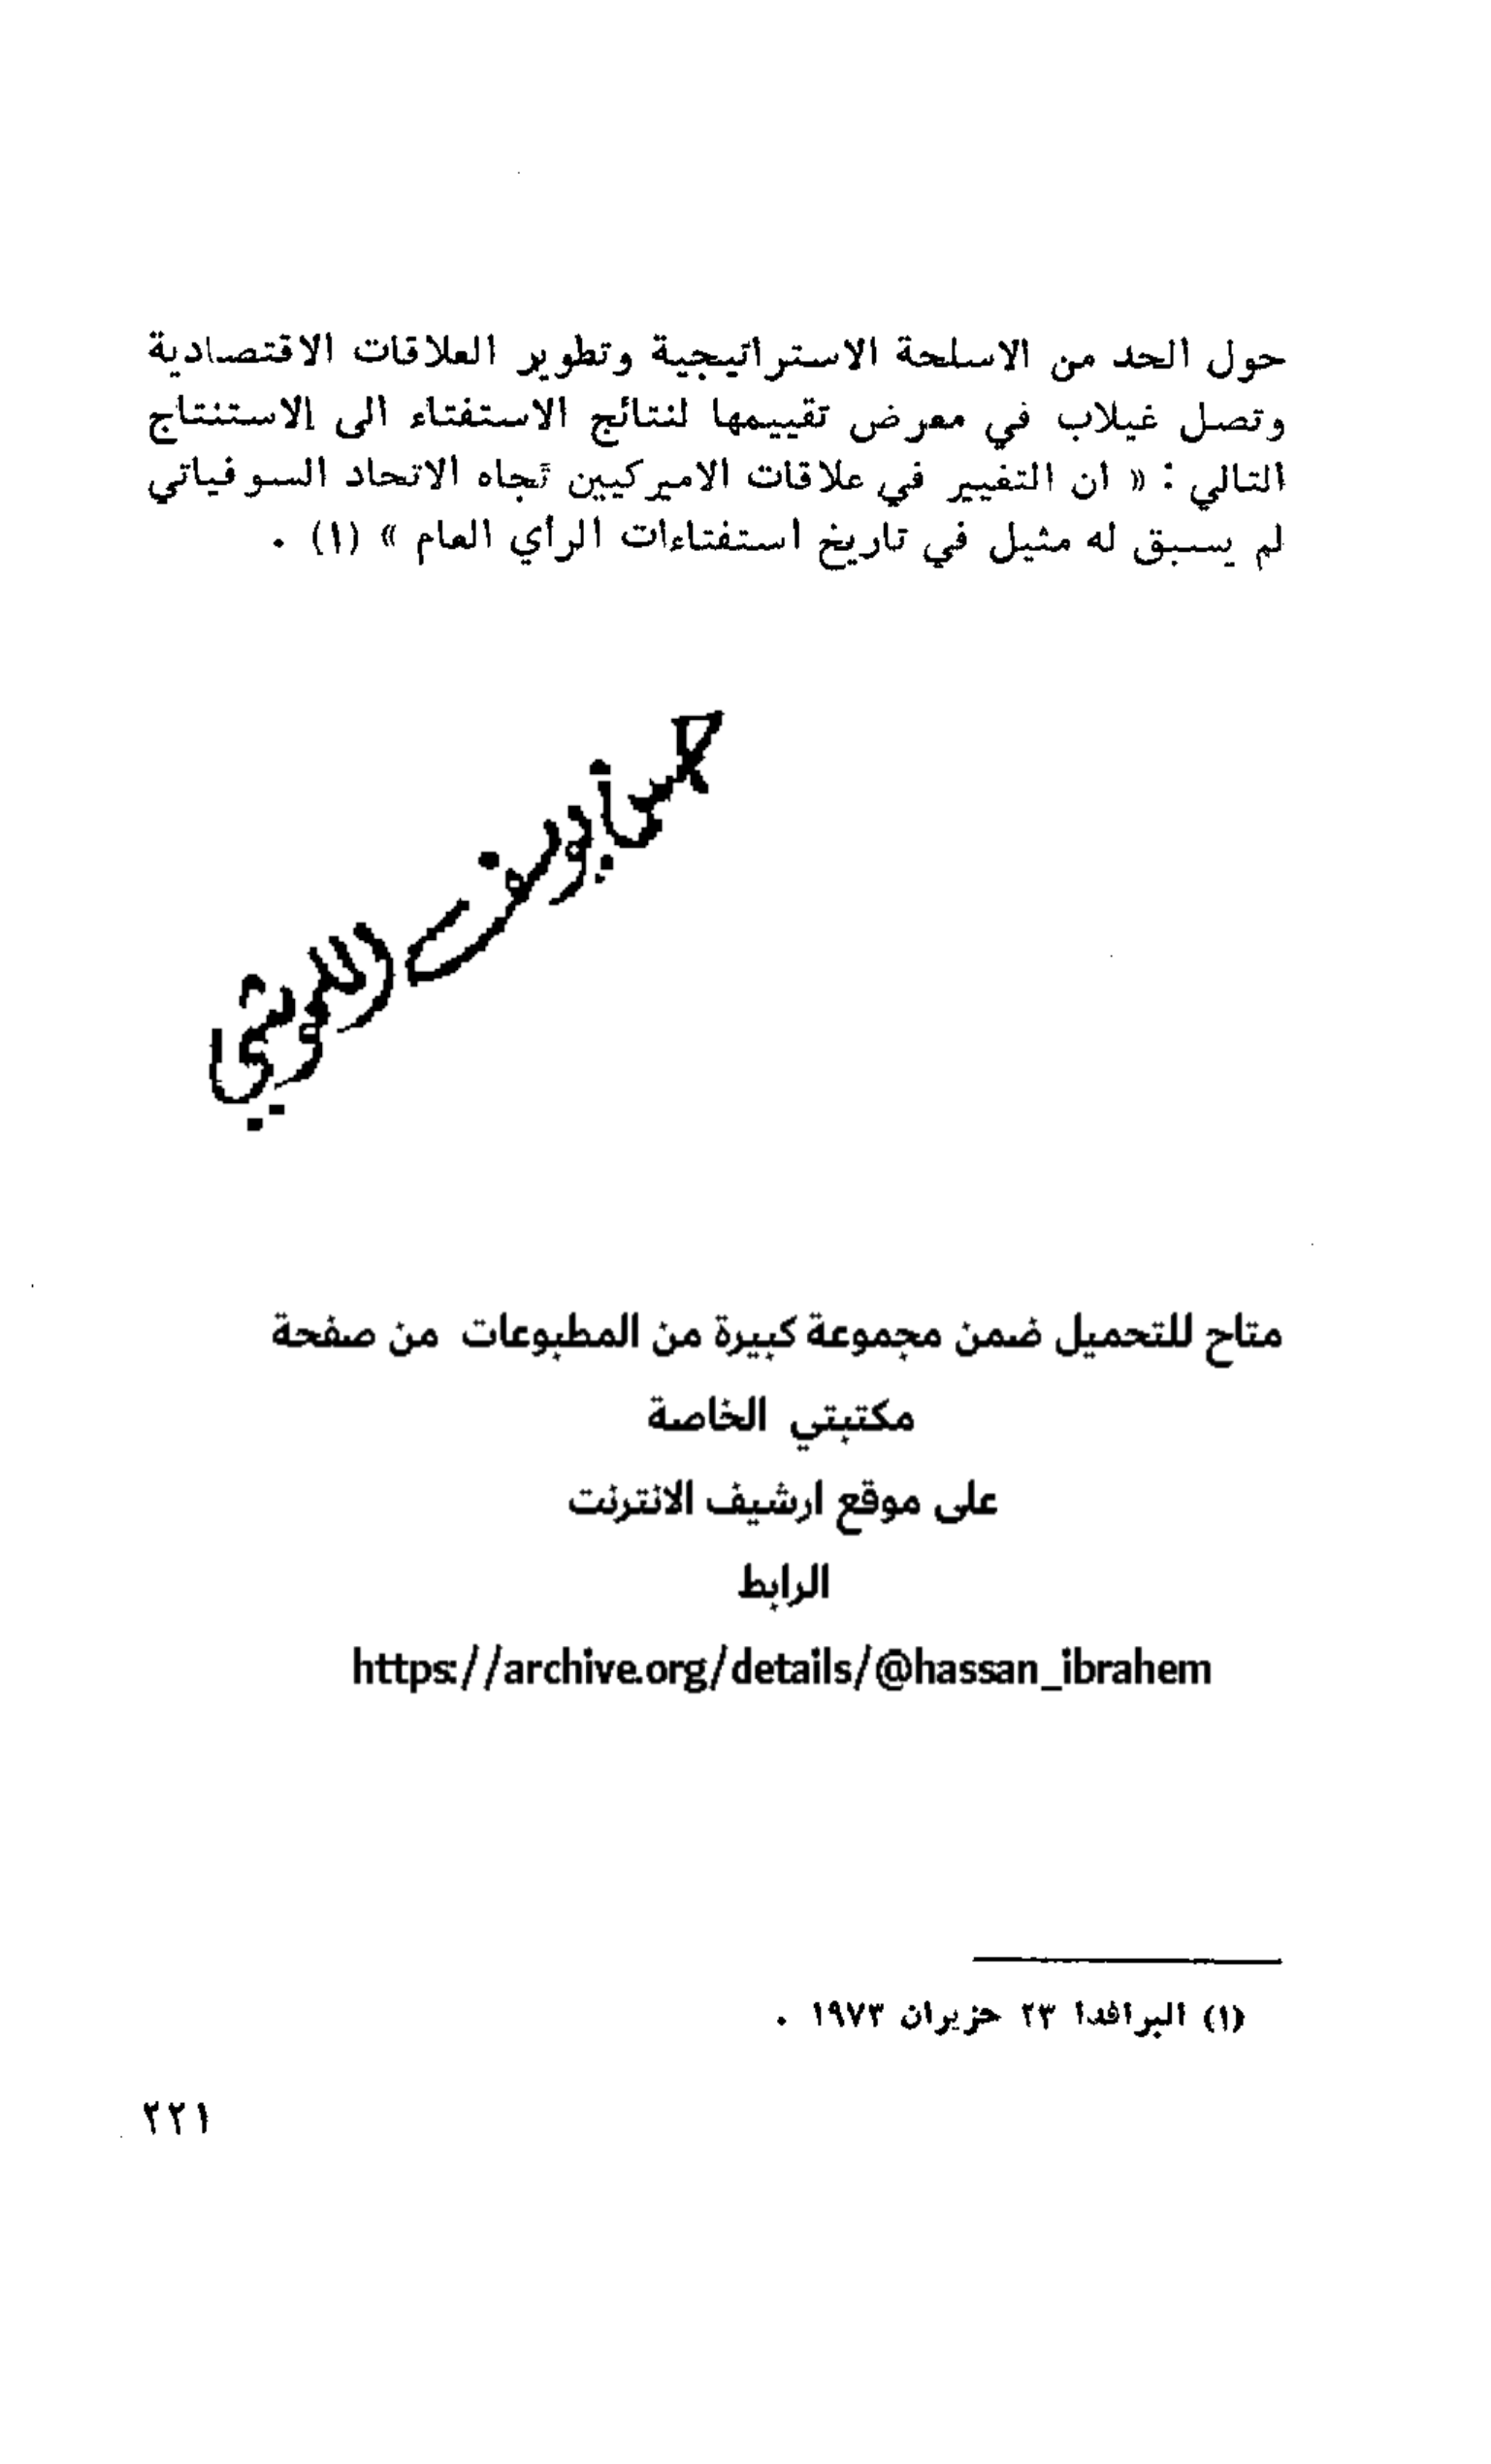 حول الحد من الاسلحة الاستراتيجية وتطوير العلاقات الاقتصادية
وتصل غيلاب في معرض تقييمها لنتائج الاستفتاء الى الاستنتاج
التالي : « ان التغيير في علاقات الاميركيين تجاه الاتحاد السوفياتي
لم يسبق له مثيل في تاريخ استفتاءات الرأي العام » (١) .
متاح للتحميل ضمن مجموعة كبيرة من المطبوعات من صفحة
مكتبتي الخاصة
على موقع ارشيف الانترنت
الرابط
https://archive.org/details/@hassan_ibrahem
(١) البرافدا ٢٣ حزيران ١٩٧٣ .
٢٢١